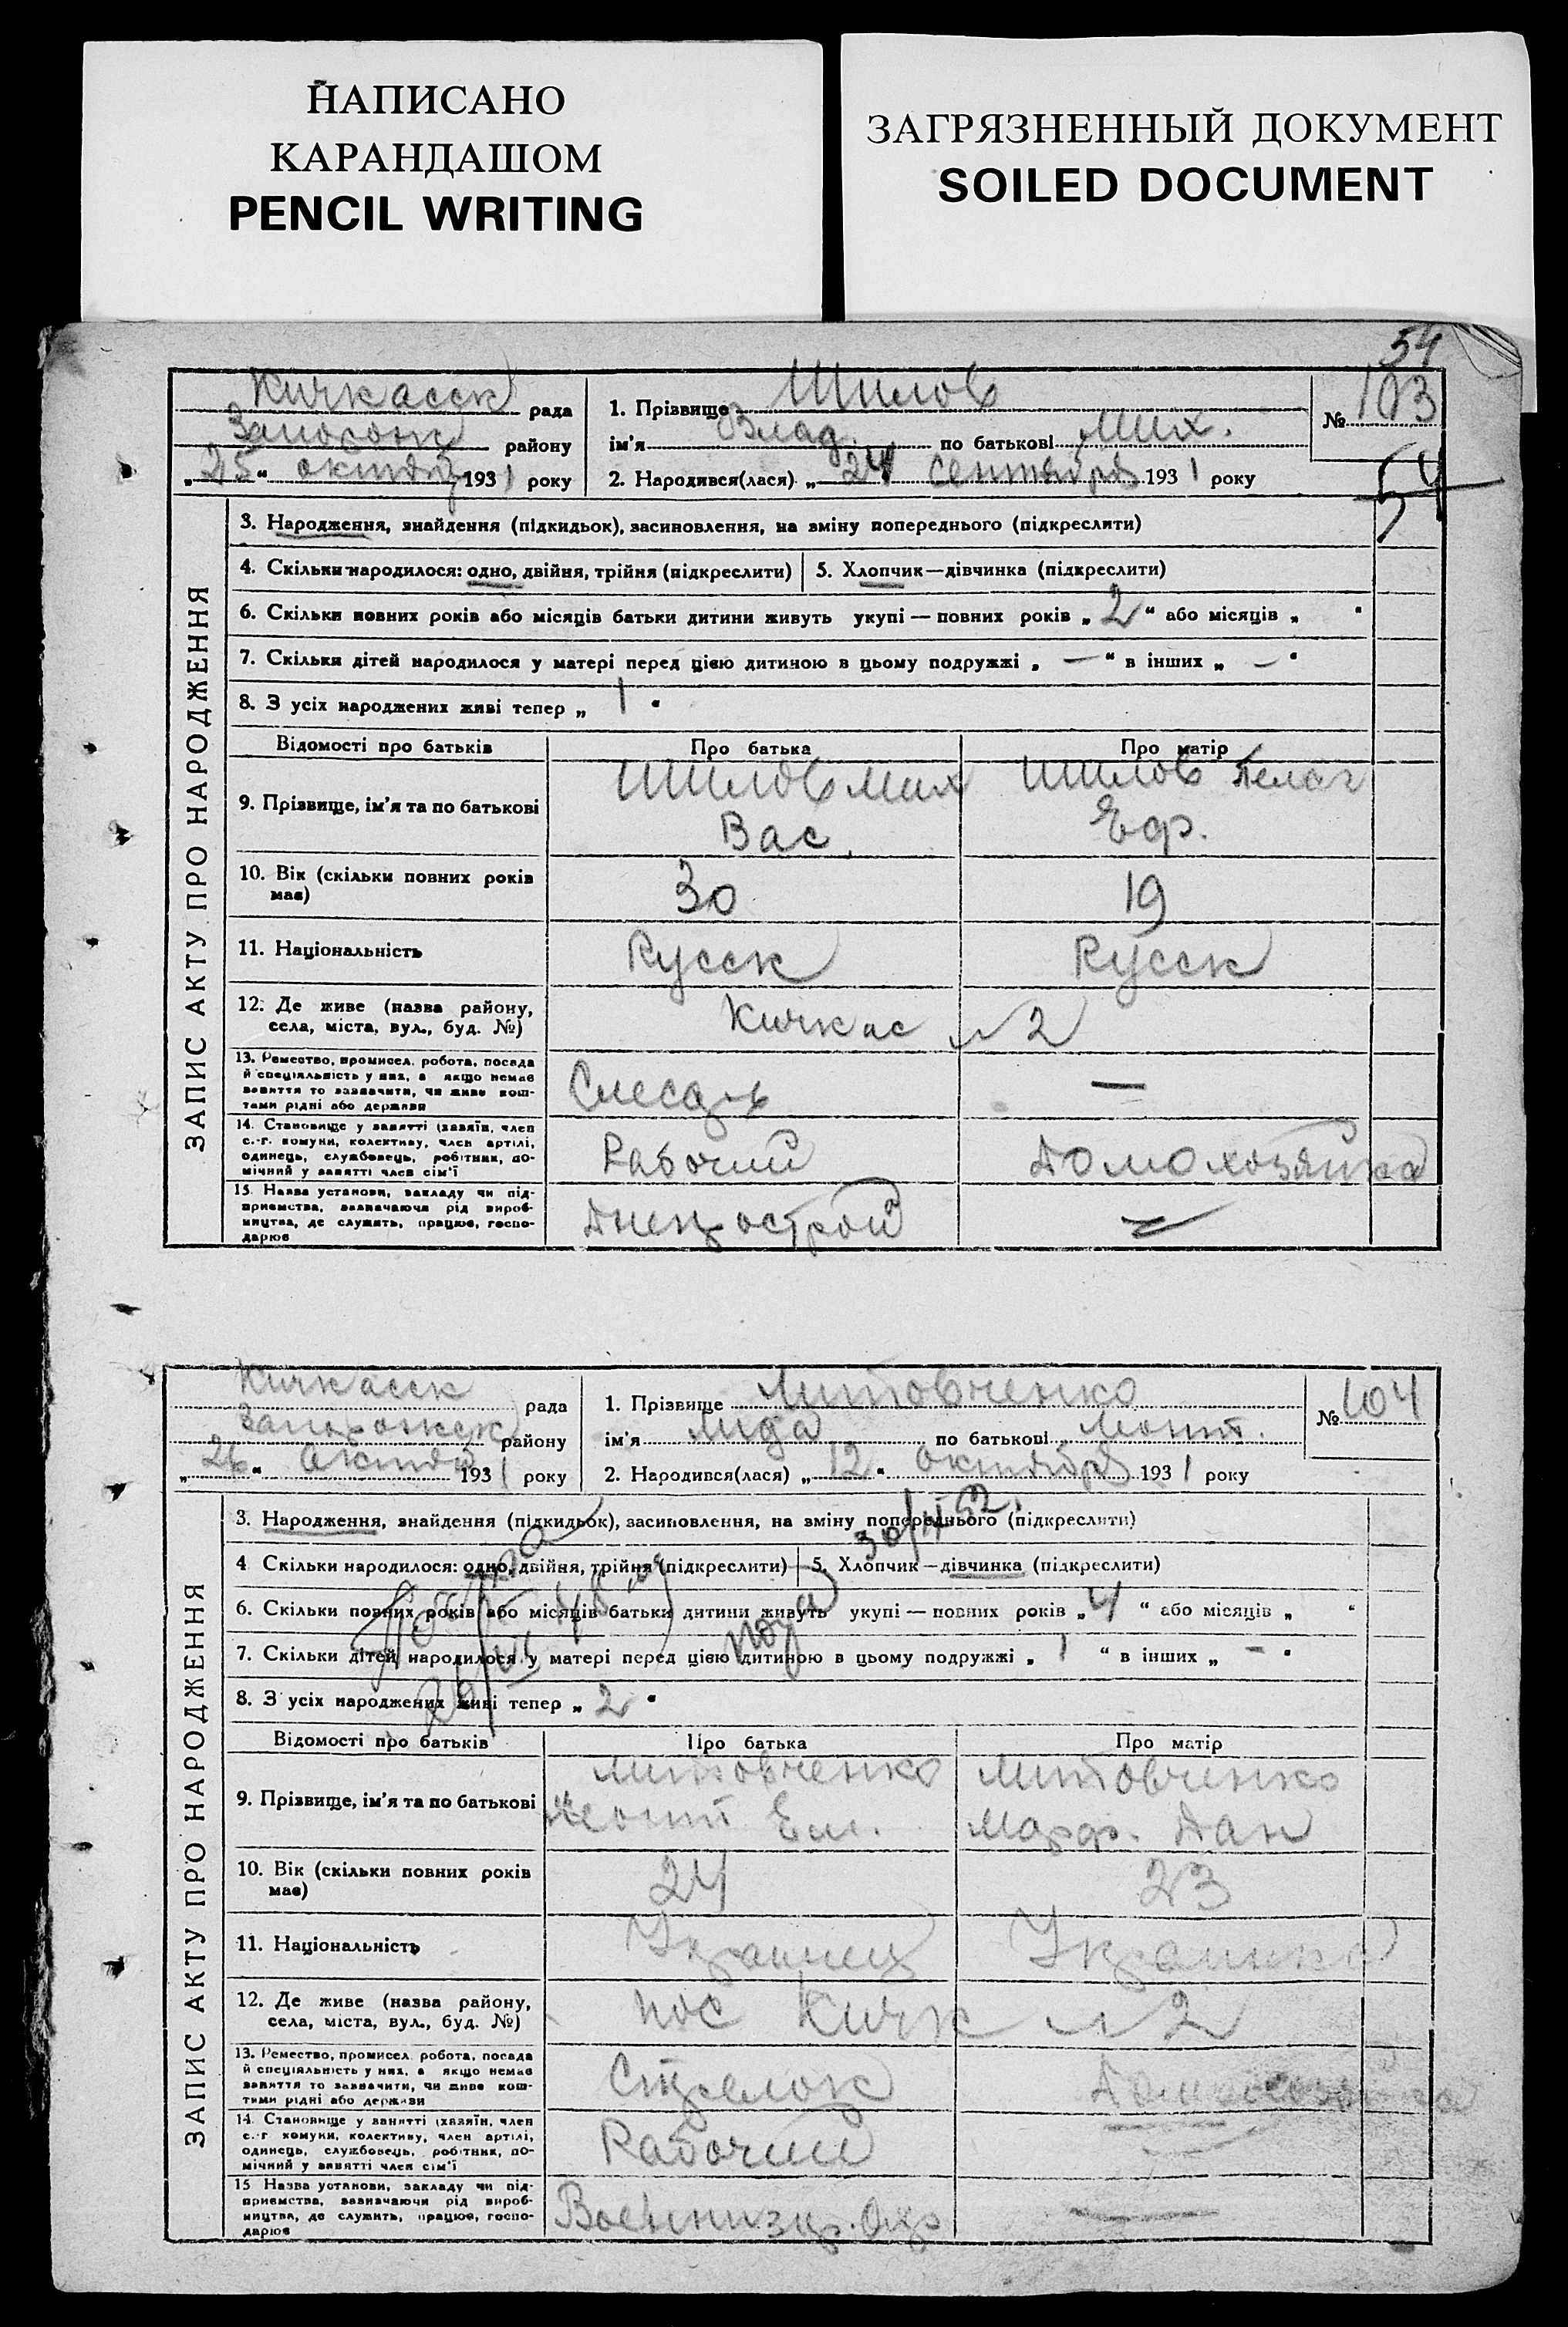 НАПИСАНО
КАРАНДАШОМ
PENCIL WRITING
ЗАГРЯЗНЕННЫЙ ДОКУМЕНТ
SOILED DOCUMENT
54
Кичкасск рада
Запорож району
„25“ октябр 1931 року
1. Прізвище Шилов
ім'я Влад. по батькові Мих.
2. Народився(лася) „24 сентября 1931 року
№ 103
54
ЗАПИС АКТУ ПРО НАРОДЖЕННЯ
3. Народження, знайдення (підкидьок), засиновлення, на зміну попереднього (підкреслити)
4. Скільки народилося: одно, двійня, трійня (підкреслити) 5. Хлопчик—дівчинка (підкреслити)
6. Скільки повних років або місяців батьки дитини живуть укупі — повних років „2“ або місяців „ “
7. Скільки дітей народилося у матері перед цією дитиною в цьому подружжі „ — “ в інших „ — “
8. З усіх народжених живі тепер „ 1 “
Відомості про батьків Про батька Про матір
9. Прізвище, ім'я та по батькові Шилов Мих Вас. Шилов Пелаг Еф.
10. Вік (скільки повних років має) 30 19
11. Національність Русск Русск
12. Де живе (назва району, села, міста, вул., буд. №) Кичкас 2
13. Ремество, промисел, робота, посада й спеціяльність у них, а якщо немає заняття то зазначити, чи живе коштами рідні або держави Слесарь —
14. Становище у занятті (хазяїн, член с.-г. комуни, колективу, член артілі, одинець, службовець, робітник, помічний у занятті член сім'ї Рабочий Домохозяйка
15. Назва установи, закладу чи підприємства, зазначаючи рід виробництва, де служить, працює, господарює Днепрострой —
Кичкасск рада
Запорожск району
„26“ Октяб 1931 року
1. Прізвище Литовченко
ім'я Лида по батькові Леонт.
2. Народився(лася) „12“ октября 1931 року
№ 104
ЗАПИС АКТУ ПРО НАРОДЖЕННЯ
3. Народження, знайдення (підкидьок), засиновлення, на зміну попереднього (підкреслити)
4 Скільки народилося: одно, двійня, трійня (підкреслити) 5. Хлопчик—дівчинка (підкреслити)
6. Скільки повних років або місяців батьки дитини живуть укупі — повних років „4“ або місяців „ “
7. Скільки дітей народилося у матері перед цією дитиною в цьому подружжі „ 1 “ в інших „ — “
8. З усіх народжених живі тепер „ 2 “
Відомості про батьків Про батька Про матір
9. Прізвище, ім'я та по батькові Литовченко Леонт Ем. Литовченко Марф. Дан
10. Вік (скільки повних років має) 24 23
11. Національність Украинец Украинка
12. Де живе (назва району, села, міста, вул., буд. №) пос Кичк 2
13. Ремество, промисел, робота, посада й спеціяльність у них, а якщо немає заняття то зазначити, чи живе коштами рідні або держави Стрелок Домохозяйка
14. Становище у занятті (хазяїн, член с.-г. комуни, колективу, член артілі, одинець, службовець, робітник, помічний у занятті член сім'ї Рабочий —
15 Назва установи, закладу чи підприємства, зазначаючи рід виробництва, де служить, працює, господарює —